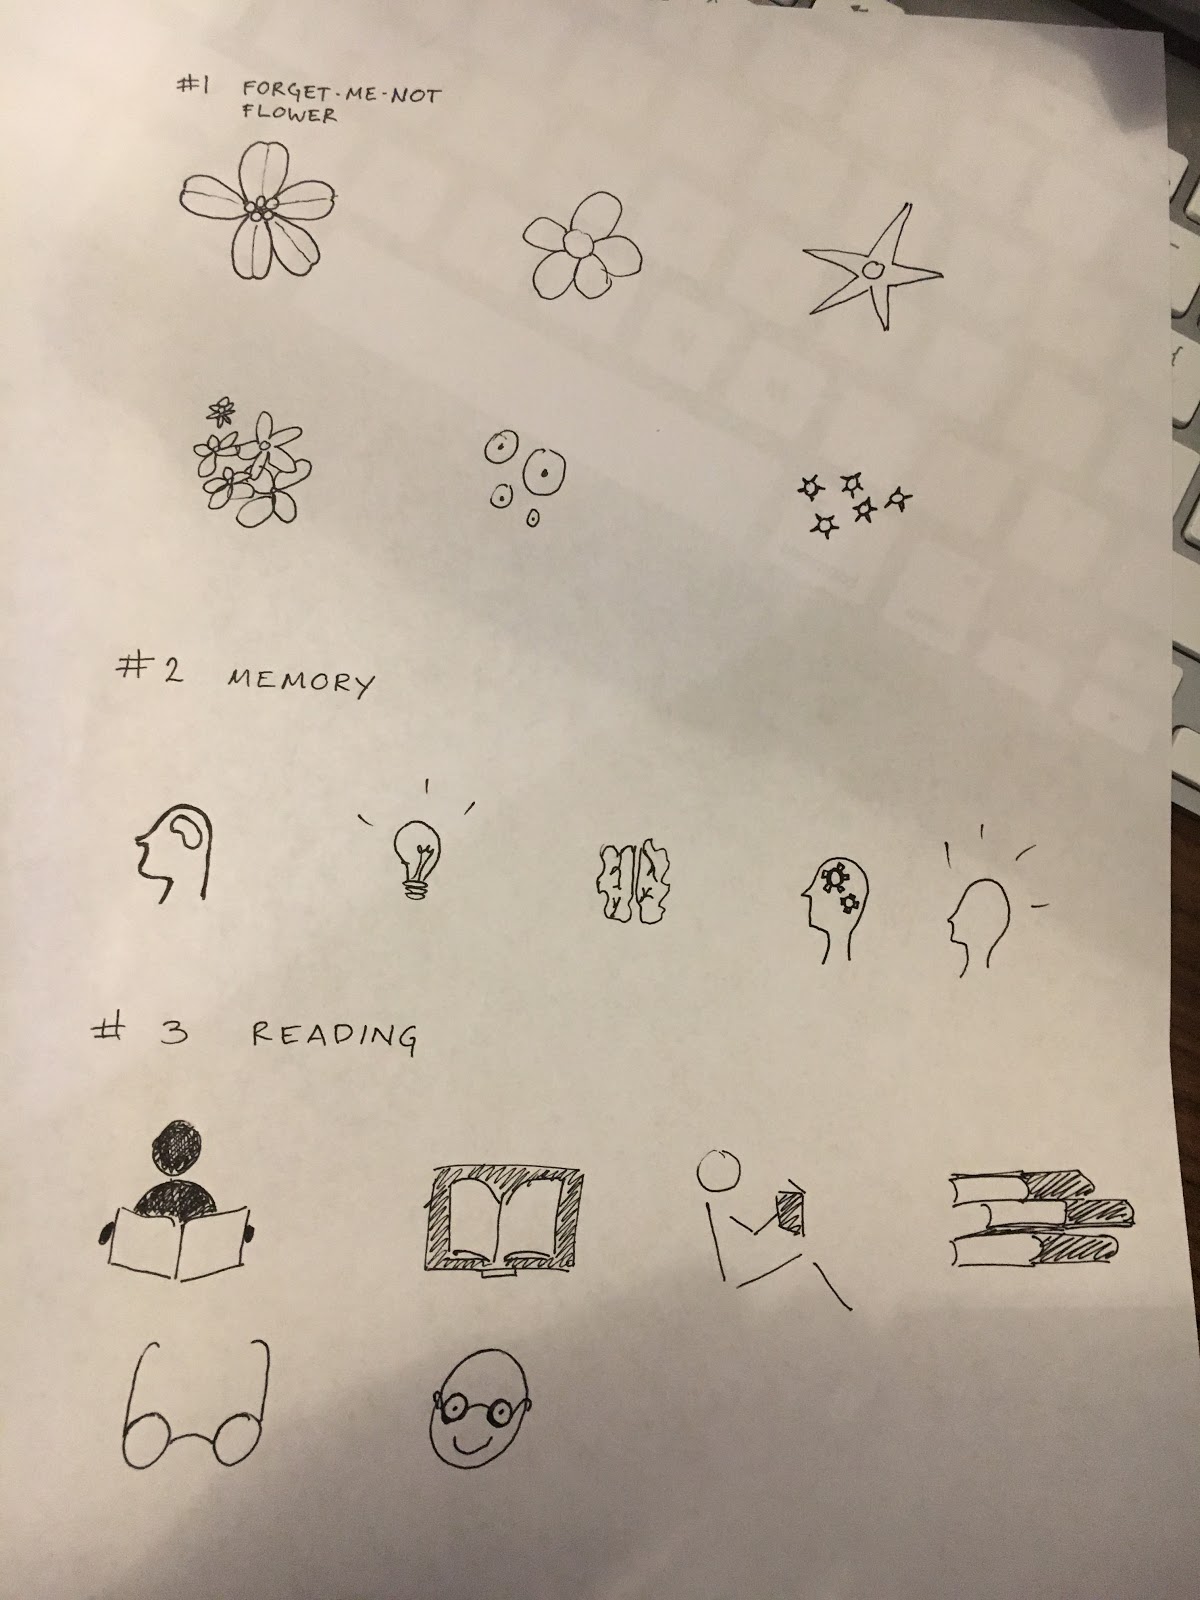 #1 FORGET-ME-NOT
FLOWER
#2 MEMORY
# 3 READING